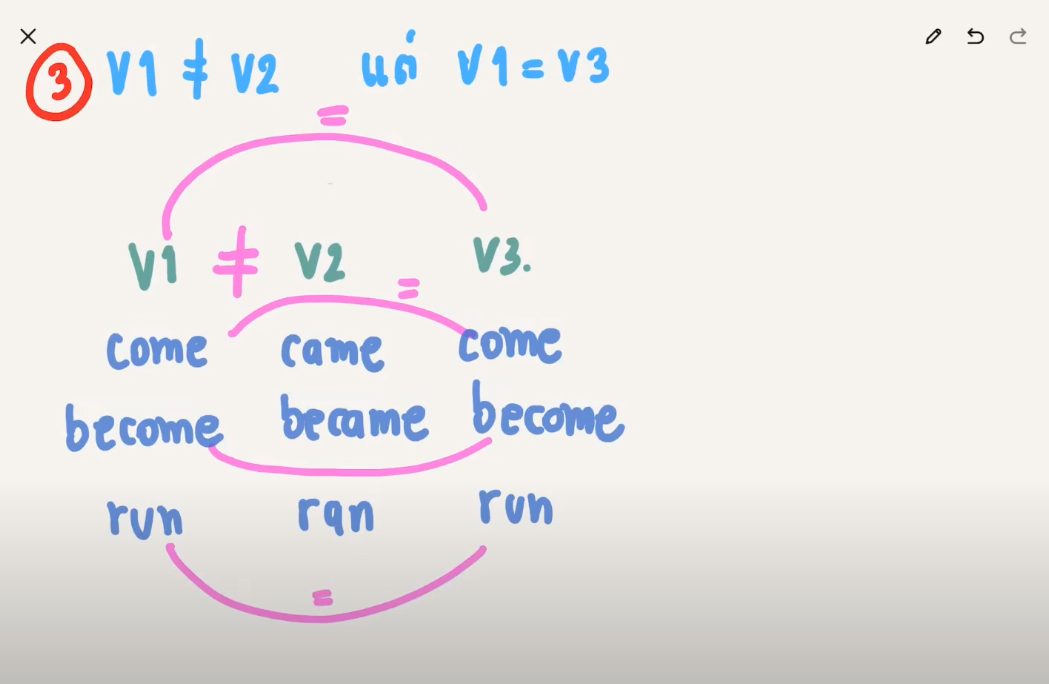 3 V1 ≠ V2 แต่ V1 = V3
=
V1 ≠ V2 V3.
=
come came come
become became become
run ran run
=